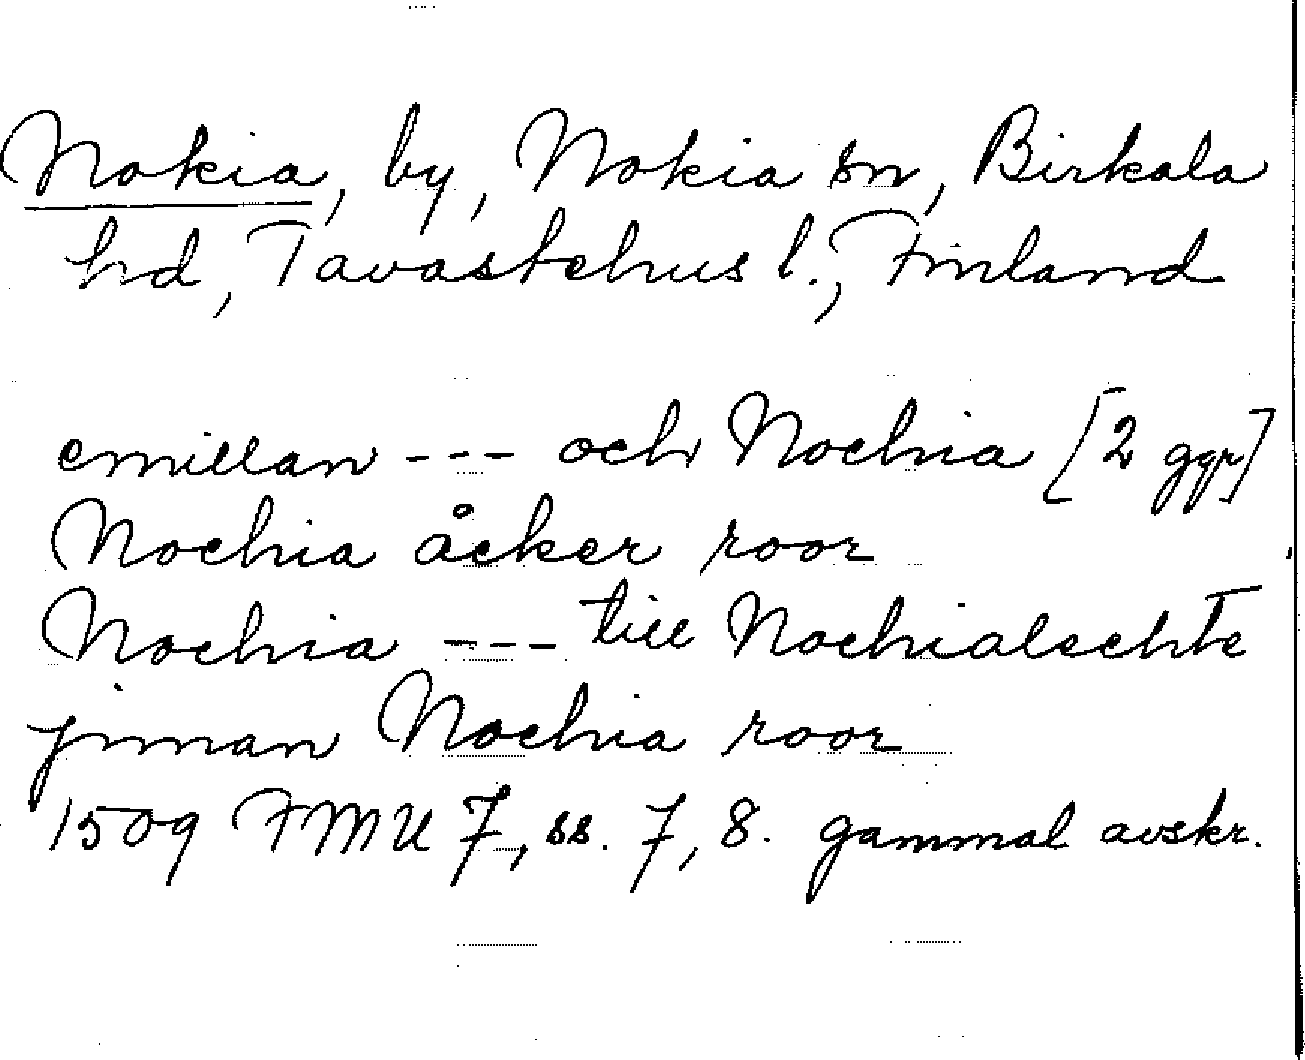 Nokia, by, Nokia sn, Birkala
hd, Tavastehus l., Finland
emillan --- och Nochia [2 ggr]
Nochia åcker roor
Nochia --- till Nochialechte
jnnan Nochia roor
1509 FMU 7, ss. 7, 8. gammal avskr.